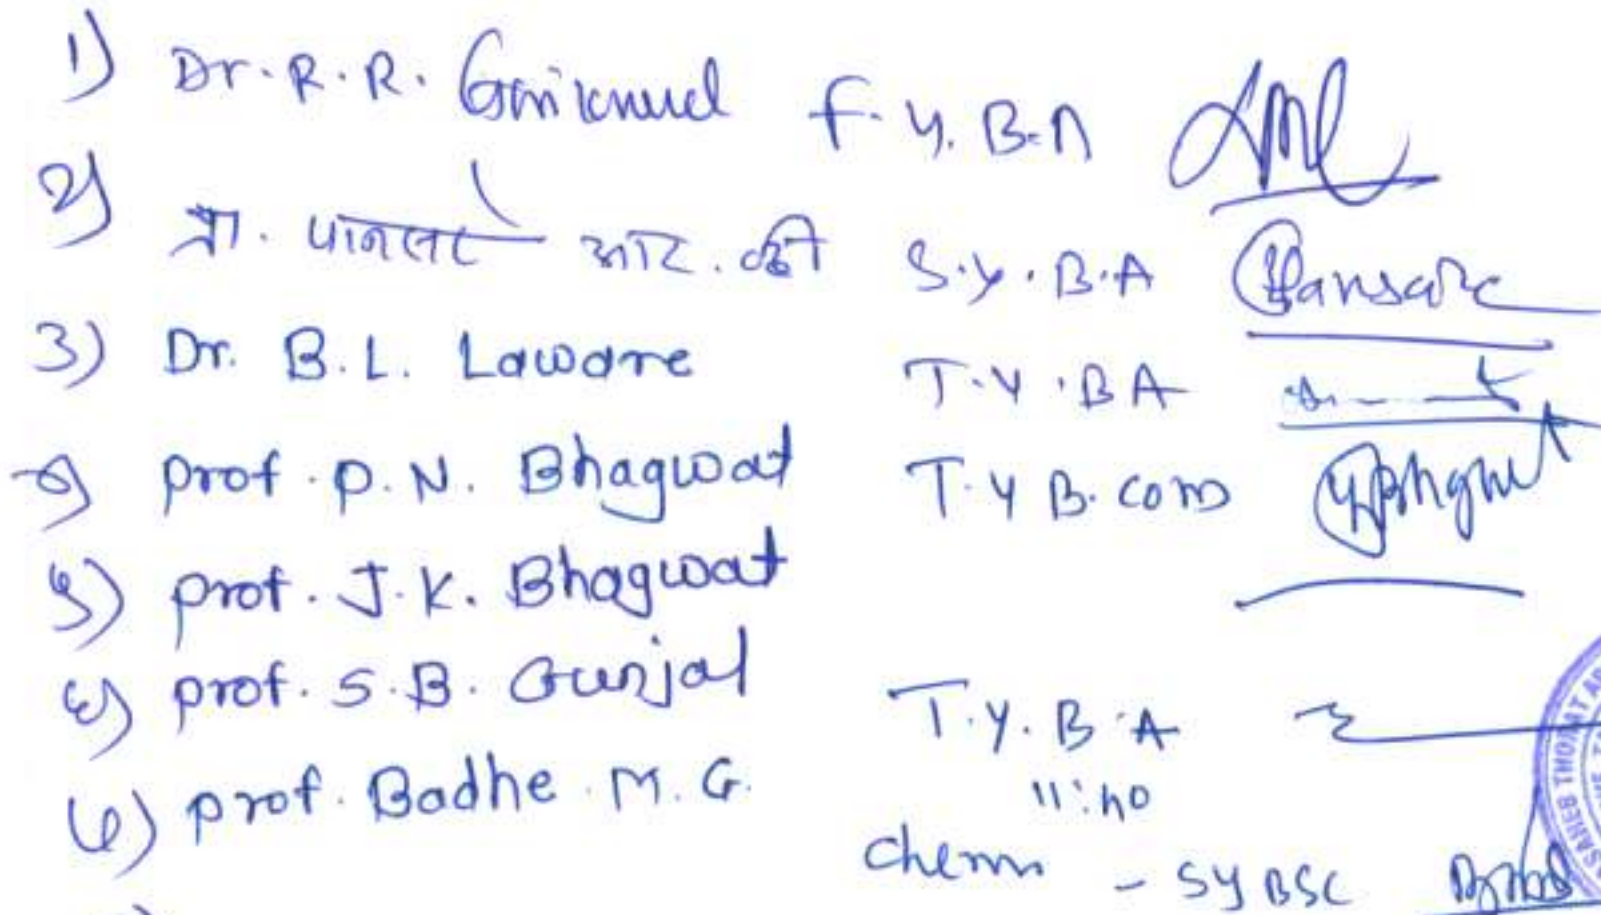 1) Dr. R. R. Gaikwad F. Y. B.A
२) प्रा. पानसरे आर. व्ही S.Y.B.A Pansare
3) Dr. B. L. Laware T.Y.BA
४) Prof. P. N. Bhagwat T.Y B.Com
५) Prof. J. K. Bhagwat
६) Prof. S. B. Gunjal T.Y.B.A
७) Prof. Badhe M. G. 11:40
Chem - SYBSC